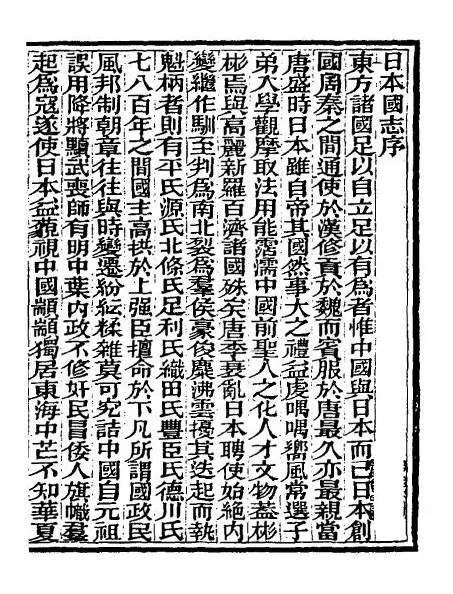 日本國志序
東方諸國足以自立足以有爲者惟中國與日本而已日本創
國周秦之間通使於漢修貢於魏而賓服於唐最久亦最親當
唐盛時日本雖自帝其國然事大之禮益虔喁喁嚮風常選子
弟入學觀摩取法用能霑濡中國前聖人之化人才文物蓋彬
彬焉與高麗新羅百濟諸國殊矣唐季衰亂日本聘使始絶内
變繼作馴至判爲南北裂爲羣侯豪俊麇沸雲擾其迭起而執
魁柄者則有平氏源氏北條氏足利氏織田氏豐臣氏德川氏
七八百年之間國主高拱於上强臣擅命於下凡所謂國政民
風邦制朝章往往與時變遷紛紜糅雜莫可究詰中國自元祖
誤用降將黷武喪師有明中葉内政不修奸民冒倭人旗幟羣
起爲寇遂使日本益藐視中國顓顓獨居東海中芒不知華夏